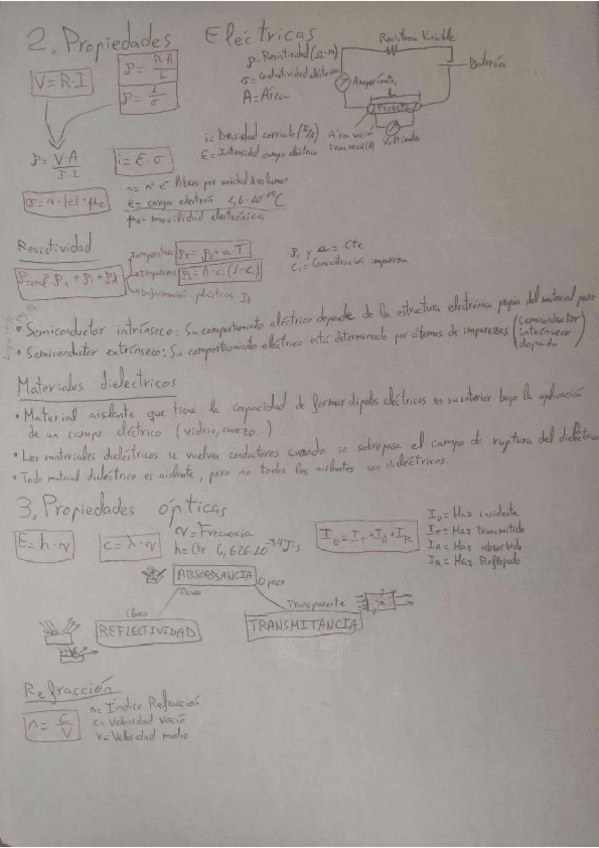 2. Propiedades Eléctricas
V = R·I
ρ = R·A / L
ρ = 1 / σ
ρ = Resistividad (Ω·m)
σ = Conductividad eléctrica
A = Área
Resistencia Variable
Batería
Amperímetro
L
Probeta
Voltímetro
Área sección transversal (A)
ρ = V·A / I·L
i = E·σ
i = Densidad corriente (I/A)
E = Intensidad campo eléctrico
σ = n·|e|·μe
n = nº e⁻ libres por unidad de volumen
e = carga electrón 1,6·10⁻¹⁹ C
μe = movilidad electrónica
Resistividad
ρtotal = ρt + ρi + ρd
Temperatura ρt = ρ0 + a·T
Impurezas ρi = A·ci (1-ci)
Deformación plástica ρd
ρ0 y a = Cte
Ci = Concentración impureza
• Semiconductor intrínseco: Su comportamiento eléctrico depende de la estructura electrónica propia del material puro
• Semiconductor extrínseco: Su comportamiento eléctrico está determinado por átomos de impurezas (semiconductor intrínseco dopado)
Materiales dielectricos
• Material aislante que tiene la capacidad de formar dipolos eléctricos en su interior bajo la aplicación
de un campo eléctrico (vidrio, cuarzo...)
• Los materiales dieléctricos se vuelven conductores cuando se sobrepasa el campo de ruptura del dieléctrico
• Todo material dieléctrico es aislante, pero no todos los aislantes son dieléctricos.
3. Propiedades ópticas
E = h·ν
c = λ·ν
ν = Frecuencia
h = Cte 6,626·10⁻³⁴ J·s
I0 = IT + IA + IR
I0 = Haz incidente
IT = Haz transmitido
IA = Haz absorbido
IR = Haz Reflejado
ABSORBANCIA
Oscuro
Opaco
Claro
Transparente
REFLECTIVIDAD
TRANSMITANCIA
Refracción
n = c / v
n = Índice Refracción
c = Velocidad vacío
v = Velocidad medio